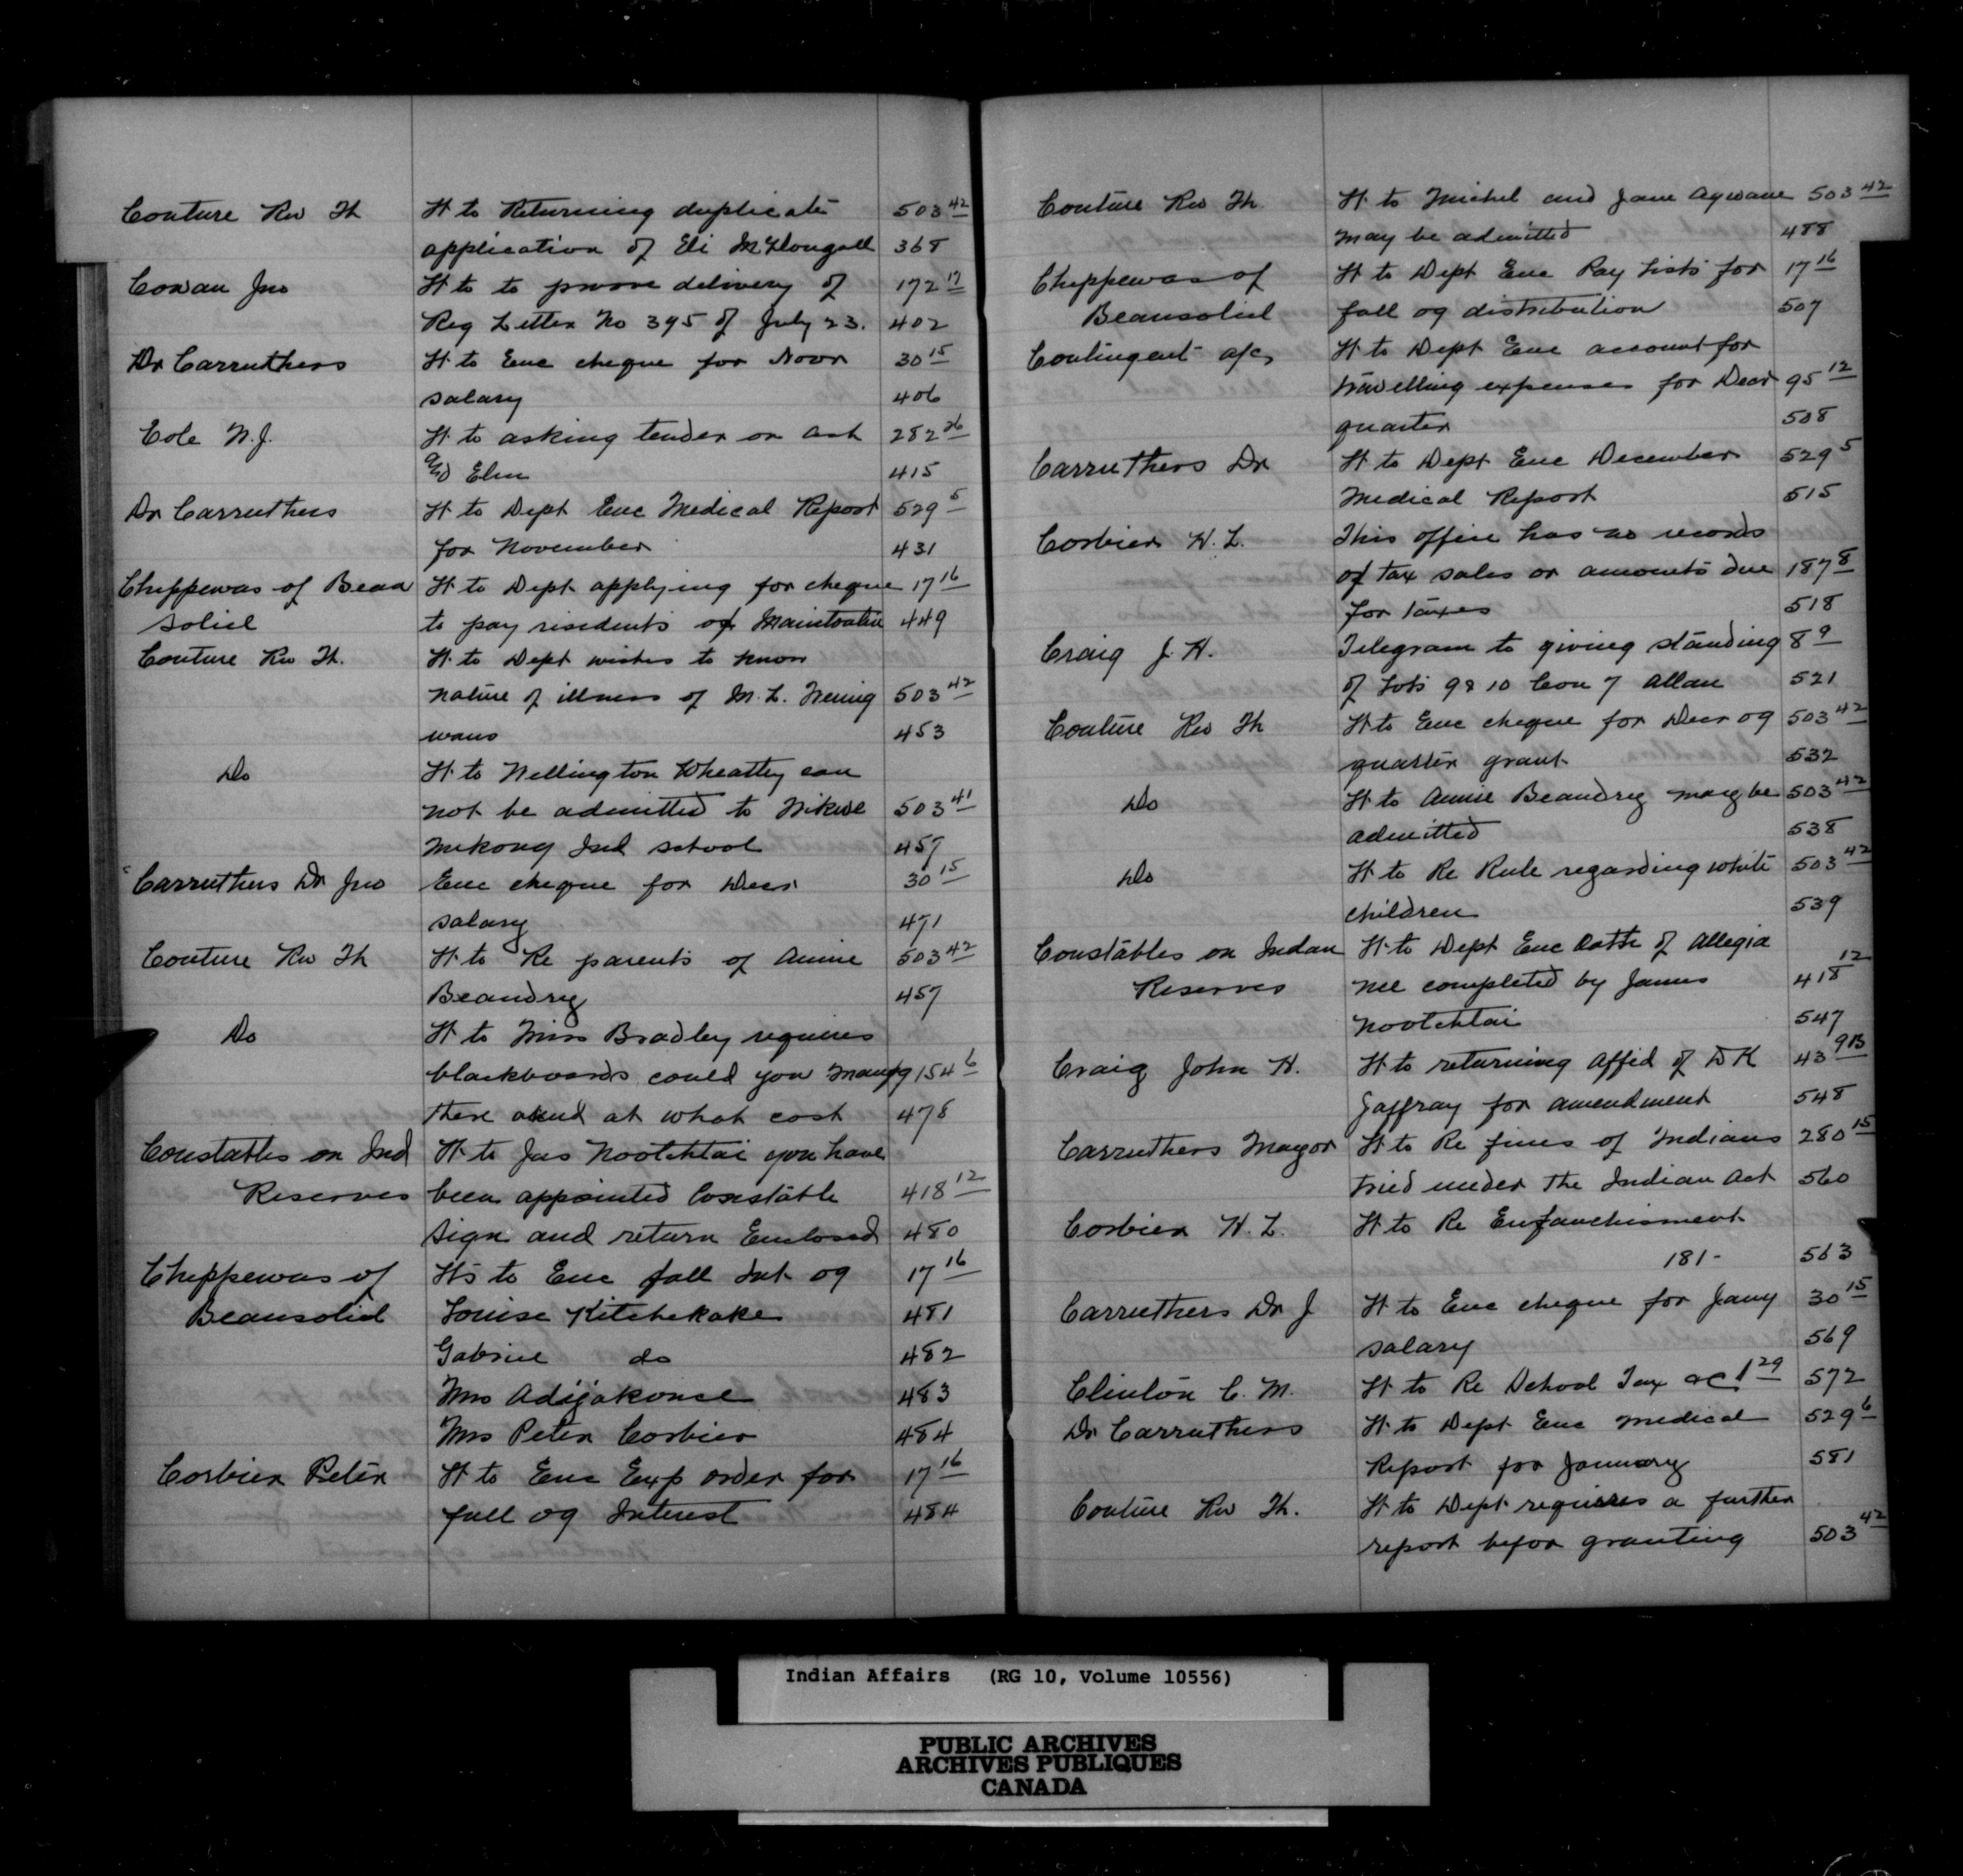 Couture Rev Th H to Returning duplicate 503 42
application of Eli McDougall 368
Cowan Jno H to to prove delivery of 172 17
Reg Letter No 395 of July 23. 402
Dr Carruthers H to Enc cheque for Novr 30 15
salary 406
Cole W.J. H to asking tender on ash 282 26
Elm 415
Dr Carruthers H to Dept Enc Medical Report 529 5
for November 431
Chippewas of Beau H to Dept applying for cheque 17 16
soliel to pay residents of 449
Couture Rev Th. H to Dept wishes to know
nature of illness of M. L. 503 42
453
Do H to Wellington Wheatley can
not be admitted to Wikwe 503 41
mekong Ind school 457
Carruthers Dr Jno Enc cheque for Decr 30 15
salary 471
Couture Rev Th H to Re parents of Annie 503 42
Beaudry 457
Do H to Miss Bradley requires
blackboards could you 154 6
there and at what cost 478
Constables on Ind H to Jas Nootchtai you have
Reserves been appointed Constable 418 12
sign and return Enclosed 480
Chippewas of Hs to Enc fall Int 09 17 16
Beausoliel Louise Kitchekake 481
Gabriel do 482
Mrs Adijakonce 483
Mrs Peter Corbier 484
Corbier Peter H to Enc Exp order for 17 16
fall 09 Interest 484
Couture Rev Th. H to Michel and Jane Agwane 503 42
may be admitted 488
Chippewas of H to Dept Enc Pay Lists for 17 16
Beausoliel fall 09 distribution 507
Contingent a/c, H to Dept Enc account for
travelling expenses for Decr 95 12
quarter 508
Carruthers Dr H to Dept Enc December 529 5
Medical Report 515
Corbier H. L. This office has no records
of tax sales or amounts due 187 8
for taxes 518
Craig J. H. Telegram to giving standing 8 9
of Lots 9 & 10 Con 7 Allan 521
Couture Rev Th H to Enc cheque for Decr 09 503 42
quarter grant 532
Do H to Annie Beaudry may be 503 42
admitted 538
Do H to Re Rule regarding white 503 42
children 539
Constables on Indan H to Dept Enc Oath of Allegia 12
Reserves nce completed by James 418
Nootchtai 547
Craig John H. H to returning Affid of D K 43 913
Jaffray for amendment 548
Carruthers Mayor H to Re fines of Indians 280 15
tried under the Indian Act 560
Corbier H. L. H to Re Enfanchisment
181- 563
Carruthers Dr J H to Enc cheque for Jany 30 15
salary 569
Clinton C. M. H to Re School Tax ac 1 29 572
Dr Carruthers H to Dept Enc medical 529 6
Report for January 581
Couture Rev Th. H to Dept requires a further
report befor granting 503 42
Indian Affairs (RG 10, Volume 10556)
PUBLIC ARCHIVES
ARCHIVES PUBLIQUES
CANADA